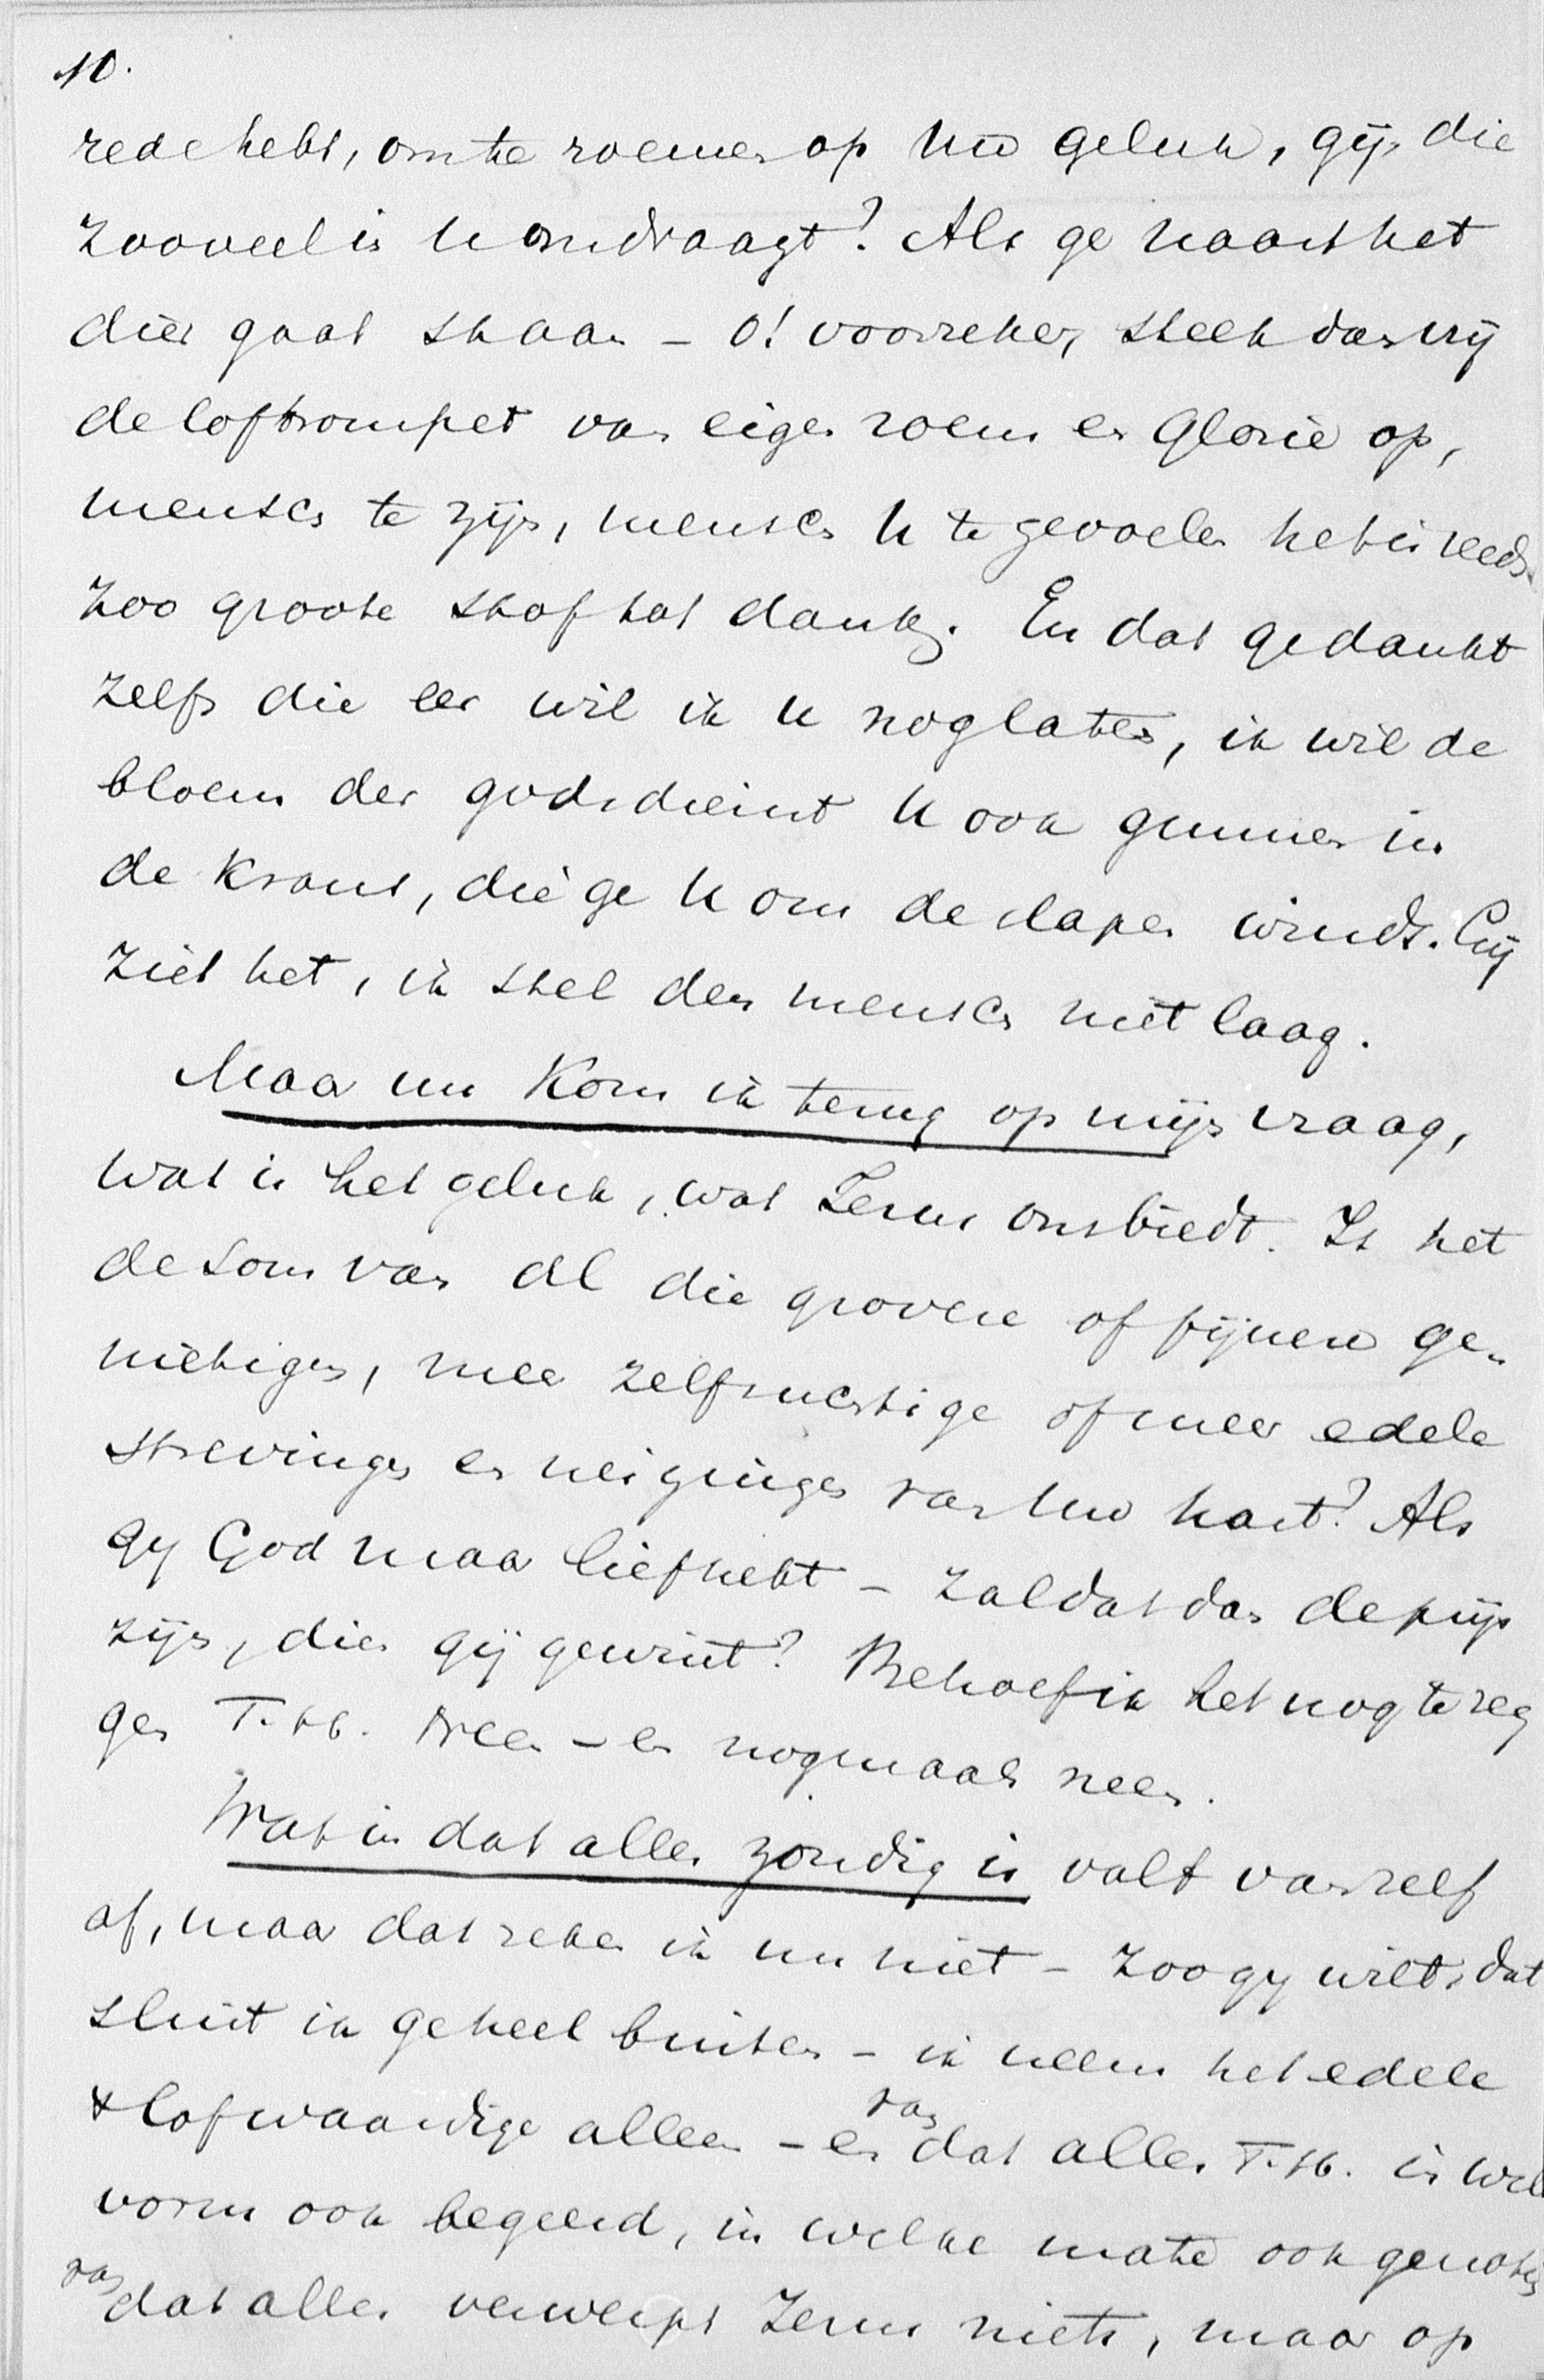 10.
rede hebt, om te roemen op Uw geluk, gij, die
zooveel in U omdraagt? Als ge naast het
dier gaat staan – o! voorzeker, steek dan vrij
de loftrompet van eigen roem en glorie op,
mensch te zijn, mensch U te gevoelen het is reeds
zoo groote stof tot dank. En dat ge dankt
zelfs die eer wil ik U nog laten, ik wil de
bloem der godsdienst U ook gunnen in
de krans, die ge U om de slapen windt. Gij
ziet het, ik stel den mensch niet laag.
Maar nu kom ik terug op mijn vraag,
wat is het geluk, wat Jezus ons biedt. Is het
de som van al die grovere of fijnere ge-
nietingen, meer zelfzuchtige of meer edele
strevingen en neigingen van Uw hart? Als
gy God maar liefhebt – zal dat dan de prijs
zijn, dien gij gewint? Behoef ik het nog te zeg
gen T. H. Neen – en nogmaals neen.
Wat in dat alles zondig is valt van zelf
af, maar dat reken ik nu niet – zoo gy wilt, dat
sluit ik geheel buiten – ik neem het edele
& lofwaardige alleen – en van dat alles T. H. in welk
vorm ook begeerd, in welke mate ook genoten
van dat alles verwerpt Jezus niets, maar op